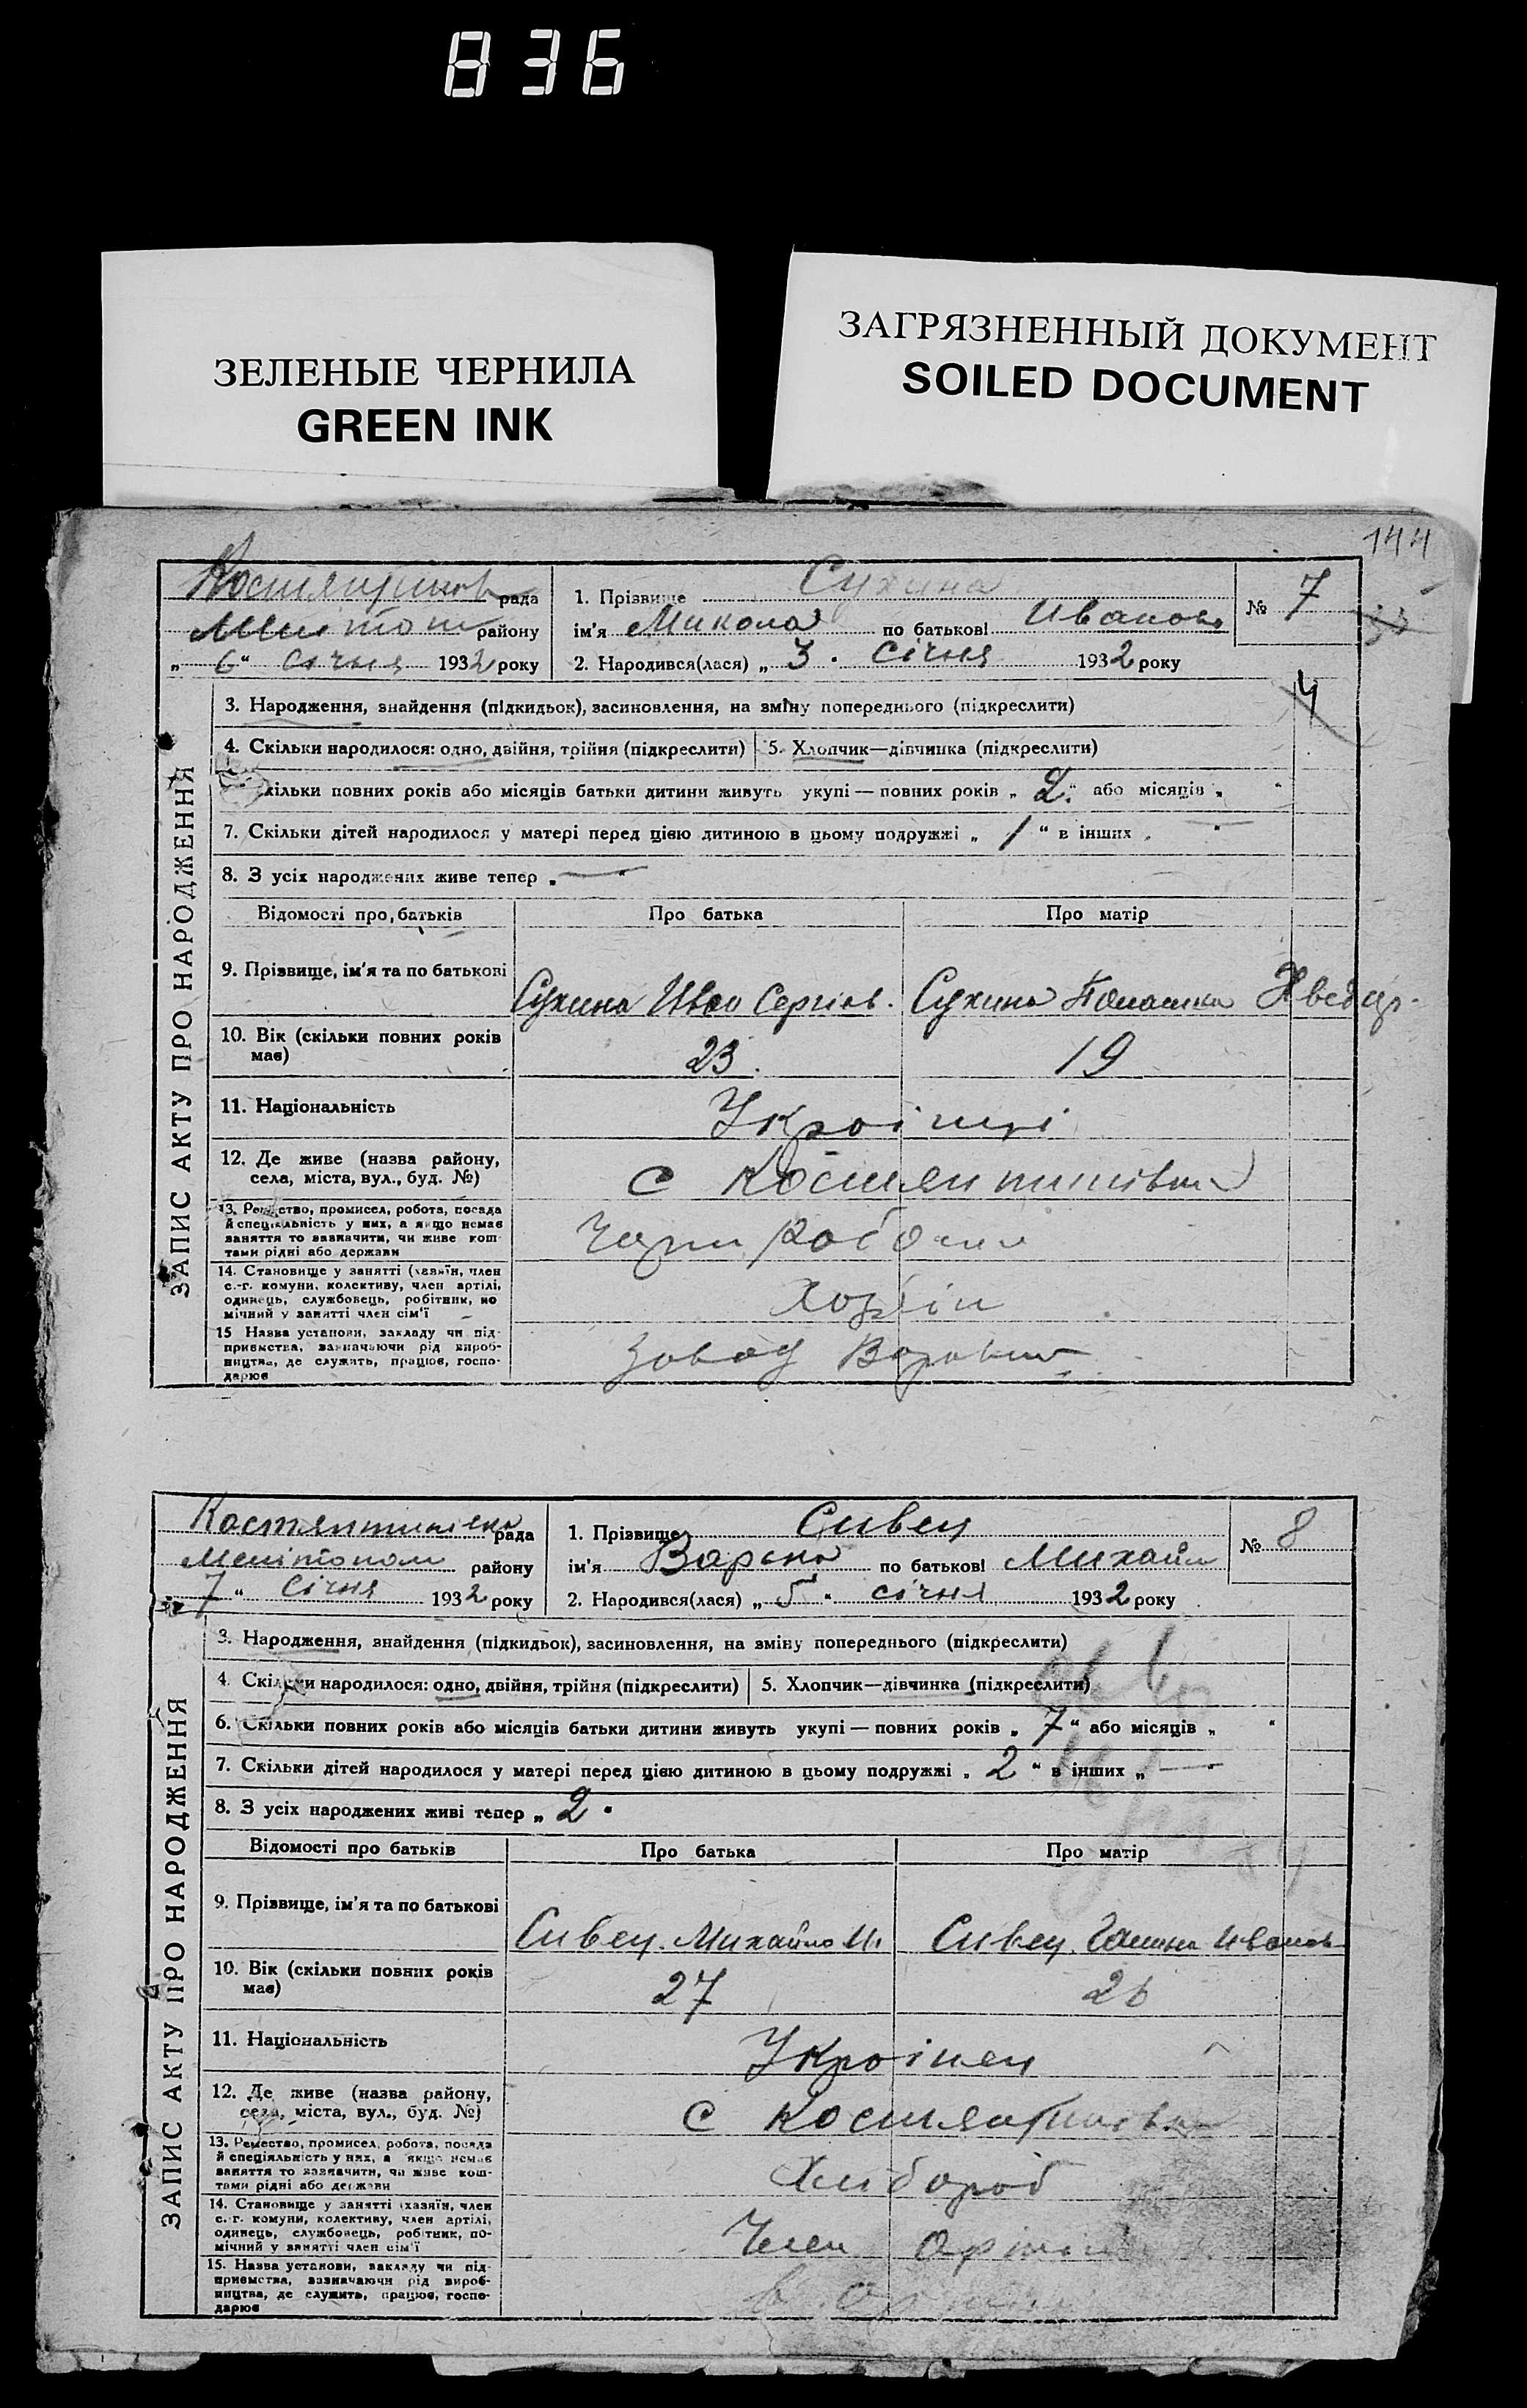 836
ЗЕЛЕНЫЕ ЧЕРНИЛА
GREEN INK
ЗАГРЯЗНЕННЫЙ ДОКУМЕНТ
SOILED DOCUMENT
144
ЗАПИС АКТУ ПРО НАРОДЖЕННЯ
рада
району
„ 6 “ січня 1932 року
1. Прізвище Сухина
ім'я Микола по батькові Иванов
2. Народився(лася) „ 3 “ січня 1932 року
№ 7
3. Народження, знайдення (підкидьок), засиновлення, на зміну попереднього (підкреслити)
4. Скільки народилося: одно, двійня, трійня (підкреслити)
5. Хлопчик—дівчинка (підкреслити)
кільки повних років або місяців батьки дитини живуть укупі — повних років „ 2 “ або місяців „ “
7. Скільки дітей народилося у матері перед цією дитиною в цьому подружжі „ 1 “ в інших „ — “
8. З усіх народжених живе тепер „ — “
Відомості про батьків
Про батька
Про матір
9. Прізвище, ім'я та по батькові
Сухина Иван Сергіев.
Сухина
10. Вік (скільки повних років має)
23
19
11. Національність
Украінці
12. Де живе (назва району, села, міста, вул., буд. №)
с Костянтинівка
13. Ремество, промисел, робота, посада
й спеціяльність у них, а якщо немає
заняття то зазначити, чи живе кош-
тами рідні або держави
14. Становище у занятті (хазяїн, член
с.-г. комуни, колективу, член артілі,
одинець, службовець, робітник, по-
мічний у занятті член сім'ї
15 Назва установи, закладу чи під-
приємства, зазначаючи рід вироб-
ництва, де служить, працює, госпо-
дарює
завод
ЗАПИС АКТУ ПРО НАРОДЖЕННЯ
Костянтинівка рада
Мелітопол району
7 “ січня 1932 року
1. Прізвище Сивец
ім'я по батькові Михайл
2. Народився(лася) „ 5 “ січня 1932 року
№ 8
3. Народження, знайдення (підкидьок), засиновлення, на зміну попереднього (підкреслити)
4. Скільки народилося: одно, двійня, трійня (підкреслити)
5. Хлопчик—дівчинка (підкреслити)
6. Скільки повних років або місяців батьки дитини живуть укупі — повних років „ 7 “ або місяців „ “
7. Скільки дітей народилося у матері перед цією дитиною в цьому подружжі „ 2 “ в інших „ — “
8. З усіх народжених живі тепер „ 2 “
Відомості про батьків
Про батька
Про матір
9. Прізвище, ім'я та по батькові
Сивец. Михайло И.
Сивец. Ганна Иванов
10. Вік (скільки повних років має)
27
26
11. Національність
Украінец
12. Де живе (назва району, села, міста, вул., буд. №)
с Костянтинівка
13. Ремество, промисел, робота, посада
й спеціяльність у них, а якщо немає
заняття то зазначити, чи живе кош-
тами рідні або держави
Хлібороб
14. Становище у занятті (хазяїн, член
с.-г. комуни, колективу, член артілі,
одинець, службовець, робітник, по-
мічний у занятті член сім'ї
Член
15. Назва установи, закладу чи під-
приємства, зазначаючи рід вироб-
ництва, де служить, працює, госпо-
дарює